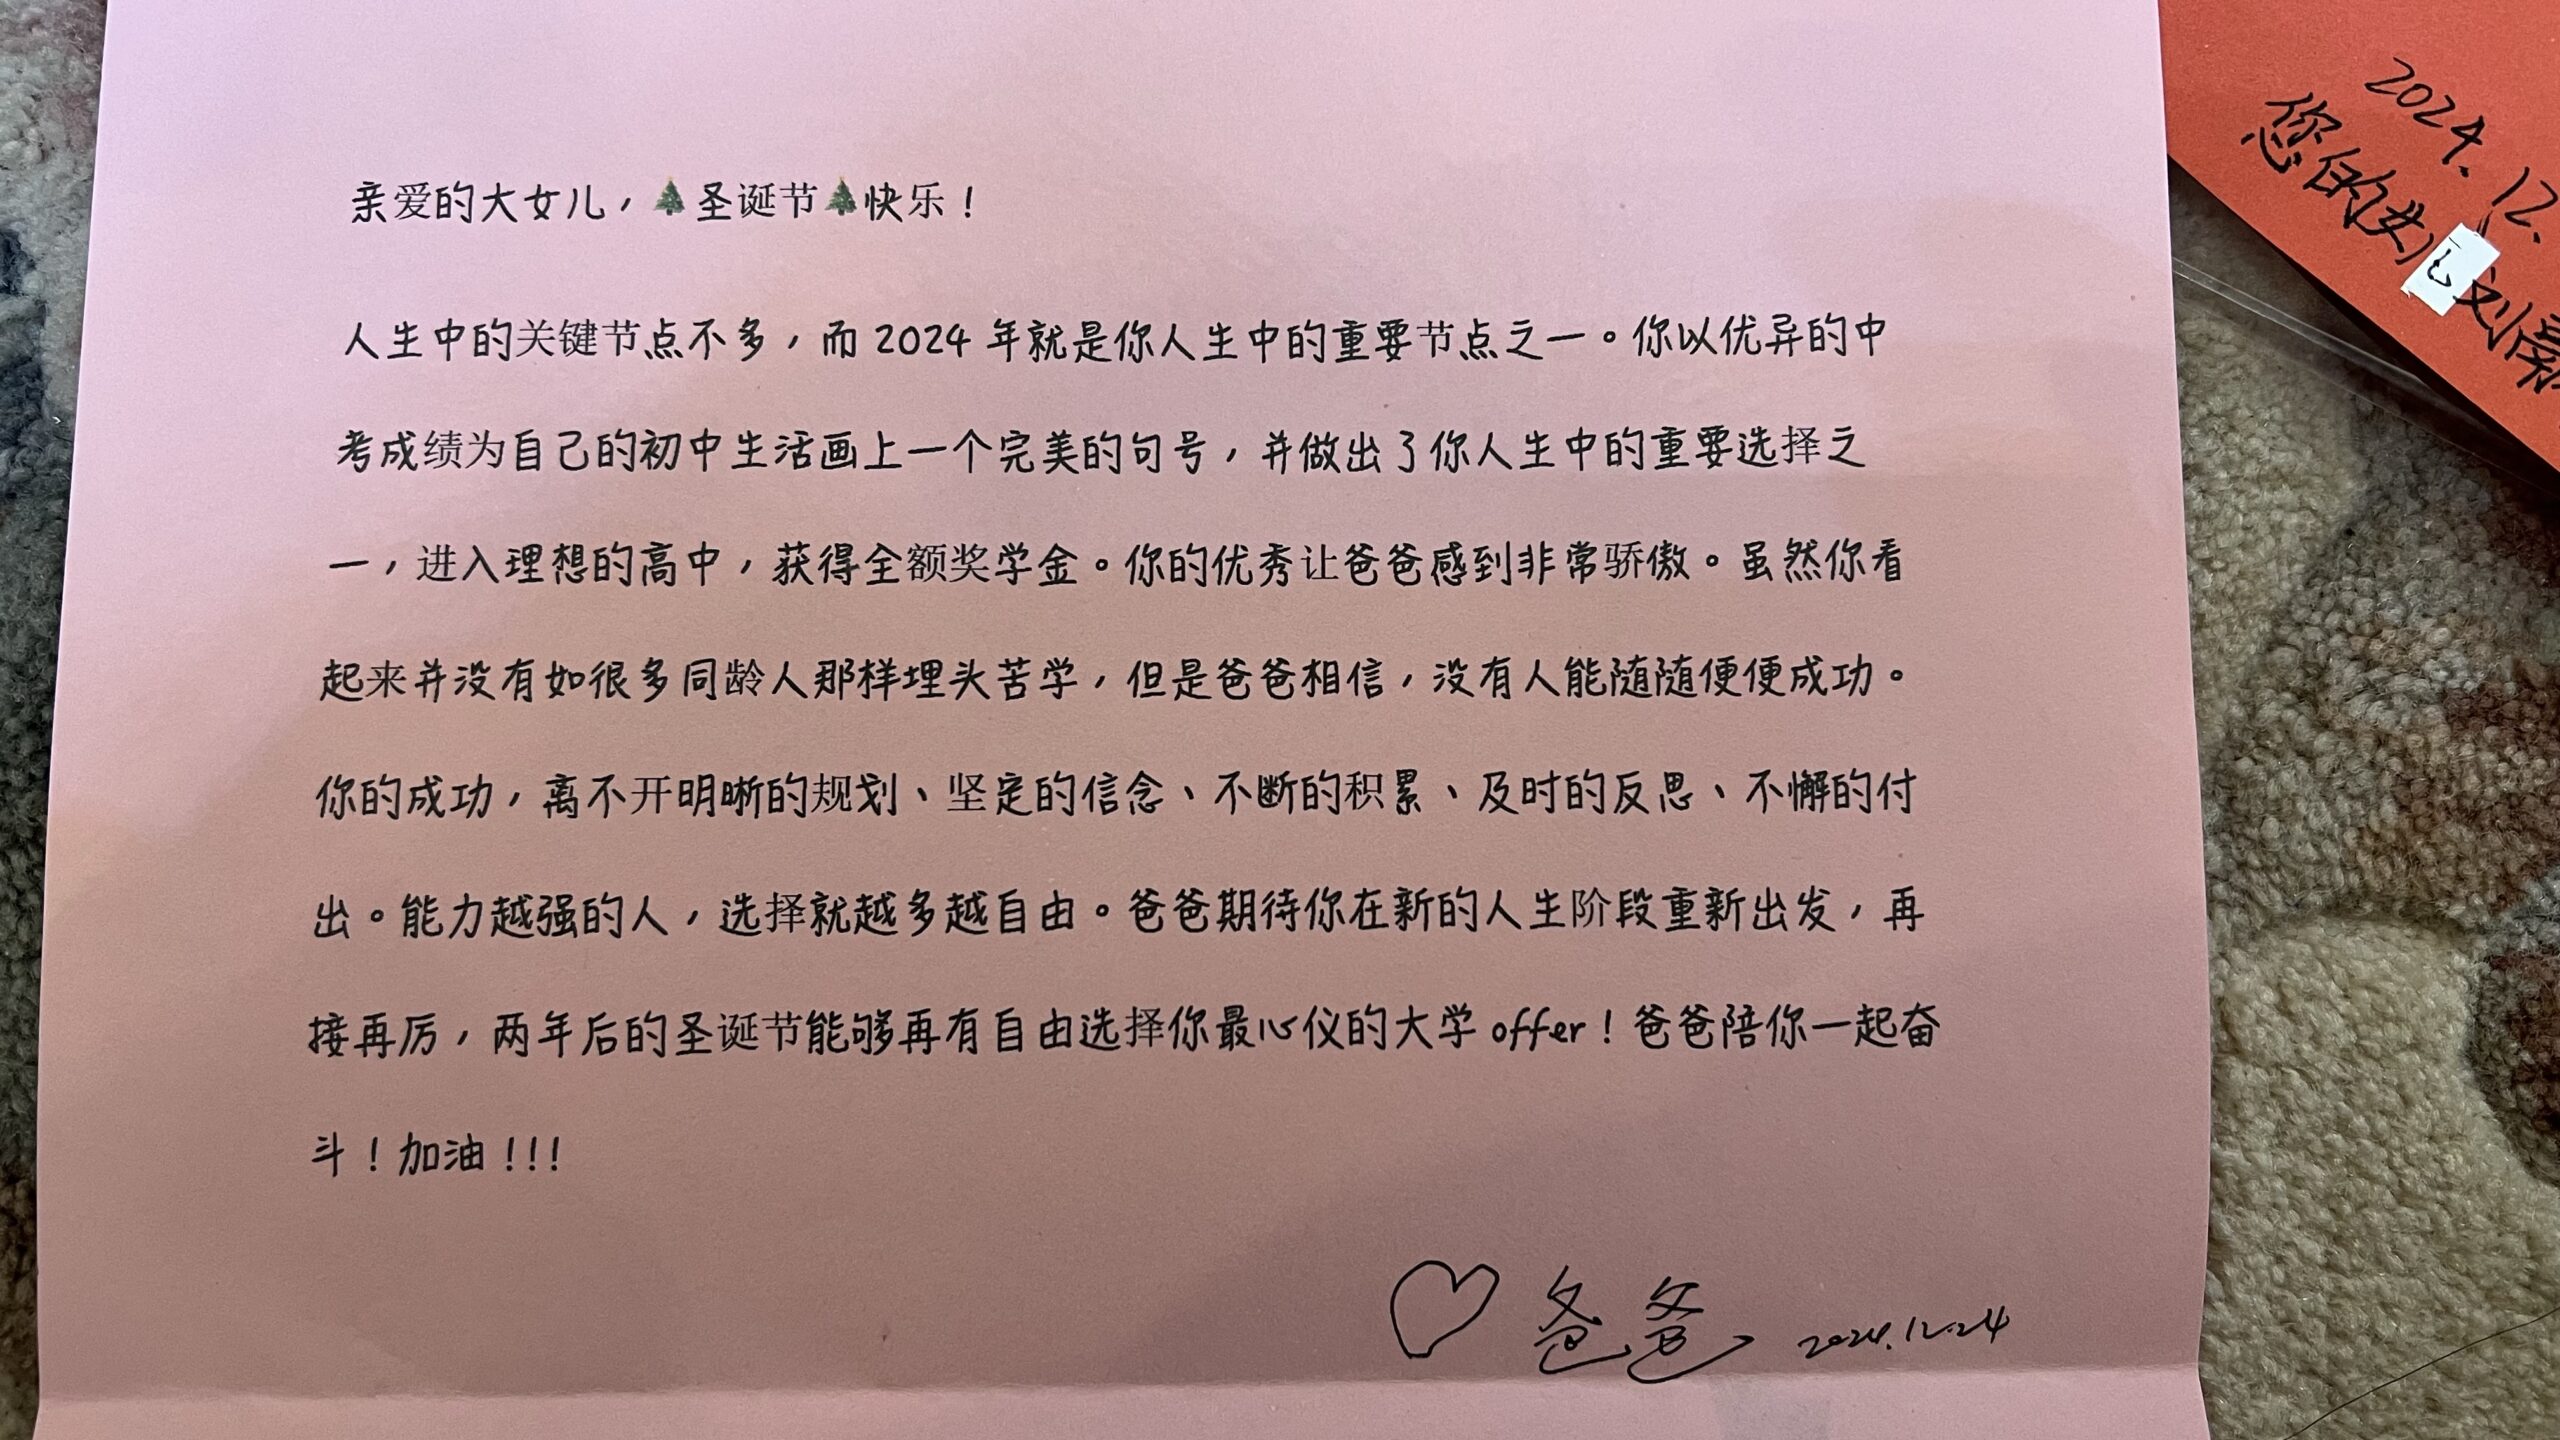 亲爱的大女儿，🎄圣诞节🎄快乐！
人生中的关键节点不多，而 2024 年就是你人生中的重要节点之一。你以优异的中
考成绩为自己的初中生活画上一个完美的句号，并做出了你人生中的重要选择之
一，进入理想的高中，获得全额奖学金。你的优秀让爸爸感到非常骄傲。虽然你看
起来并没有如很多同龄人那样埋头苦学，但是爸爸相信，没有人能随随便便成功。
你的成功，离不开明晰的规划、坚定的信念、不断的积累、及时的反思、不懈的付
出。能力越强的人，选择就越多越自由。爸爸期待你在新的人生阶段重新出发，再
接再厉，两年后的圣诞节能够再有自由选择你最心仪的大学 offer！爸爸陪你一起奋
斗！加油！!!
♡ 爸爸 2024.12.24
2024.12.
您的女儿 刘